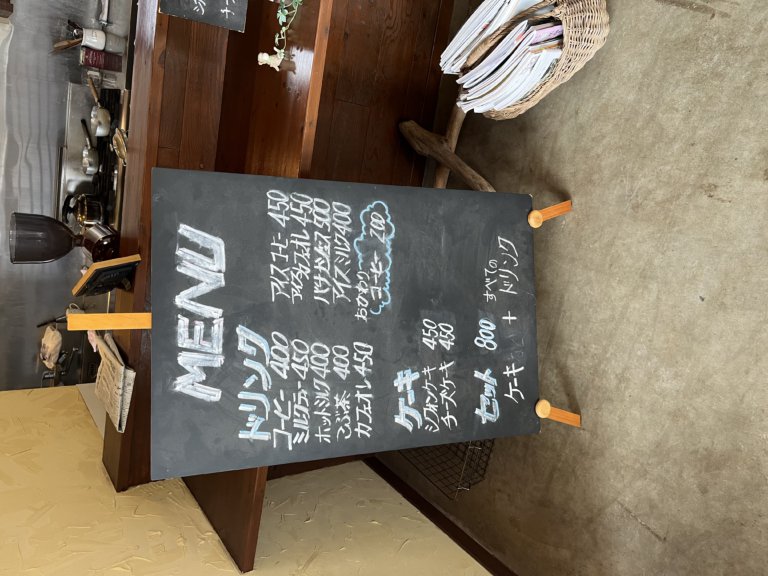 MENU
ドリンク
コーヒー 400
ミルクティー 450
ホットミルク 400
こぶ茶 400
カフェオレ 450
アイスコーヒー 450
アイスカフェオレ 450
バナナジュース 500
アイスミルク 400
おかわり
コーヒー 200
ケーキ
シフォンケーキ 450
チーズケーキ 450
セット 800
ケーキ + すべての
ドリンク